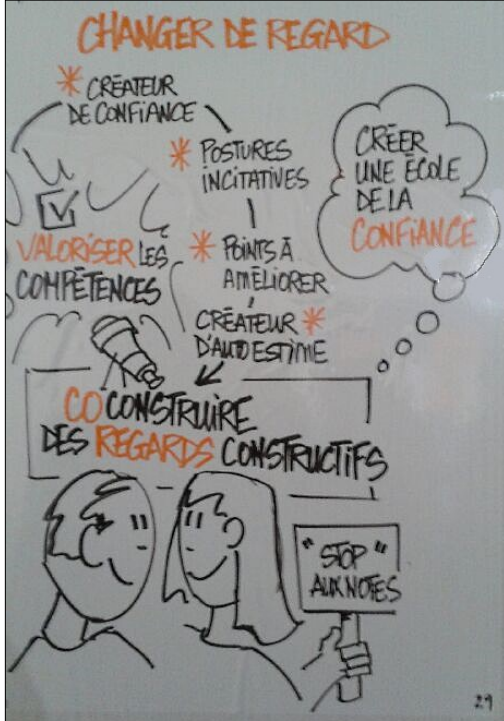 CHANGER DE REGARD
* CRÉATEUR
DE CONFIANCE
* POSTURES
INCITATIVES
* POINTS À
AMÉLIORER
CRÉATEUR *
D'AUTO ESTIME
VALORISER LES
COMPÉTENCES
CRÉER
UNE ÉCOLE
DE LA
CONFIANCE
COCONSTRUIRE
DES REGARDS CONSTRUCTIFS
"STOP"
AUX NOTES
29